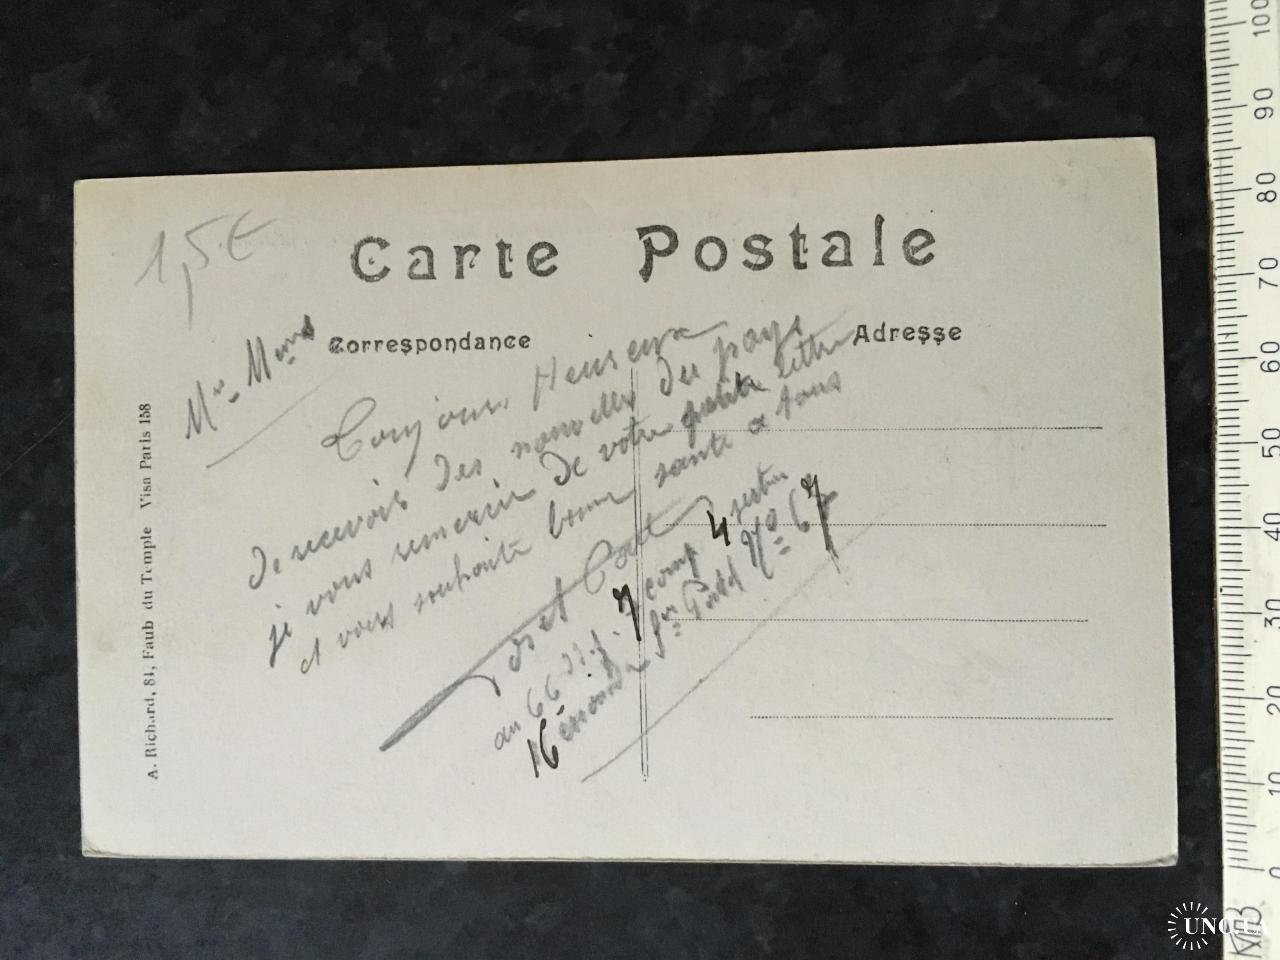 1,5€
Carte Postale
Correspondance
Adresse
Mr Mme
Toujours Heureux
de recevoir des nouvelles du pays
je vous remercie de votre petite lettre
et vous souhaite bonne santé a tous
au 66 7 comp 4 section
16 Sr Postal No 67
A. Richard, 84, Faub du Temple Visa Paris 158
100
90
80
70
60
50
40
30
20
10
0
UNQUA